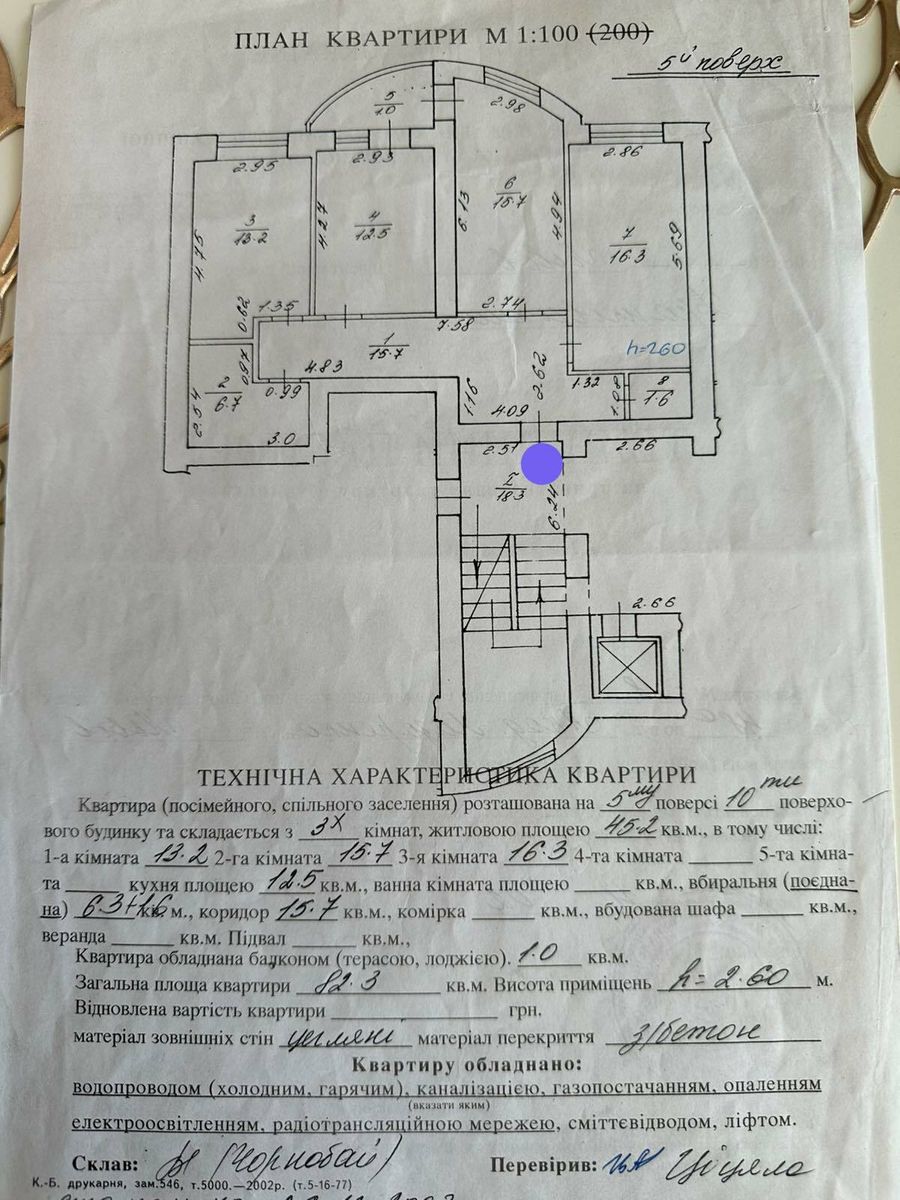 ПЛАН КВАРТИРИ М 1:100 (200)
5й поверх
5
1.0
2.98
2.95
2.93
2.86
3
13.2
4.75
4.27
4
12.5
6.13
6
15.7
4.94
7
16.3
5.69
0.62
1.35
2.74
7.58
1
15.7
h=260
4.83
0.97
2
6.7
0.99
2.54
3.0
1.16
2.62
4.09
1.32
1.08
8
1.6
2.51
2.66
I
18.3
6.24
2.66
ТЕХНІЧНА ХАРАКТЕРИСТИКА КВАРТИРИ
Квартира (посімейного, спільного заселення) розташована на 5му поверсі 10ти поверхо-
вого будинку та складається з 3х кімнат, житловою площею 45.2 кв.м., в тому числі:
1-а кімната 13.2 2-га кімната 15.7 3-я кімната 16.3 4-та кімната ______ 5-та кімна-
та ______ кухня площею 12.5 кв.м., ванна кімната площею ______ кв.м., вбиральня (поєдна-
на) 6.3+1.6 кв.м., коридор 15.7 кв.м., комірка ______ кв.м., вбудована шафа ______ кв.м.,
веранда ______ кв.м. Підвал ______ кв.м.,
Квартира обладнана балконом (терасою, лоджією). 1.0 кв.м.
Загальна площа квартири 82.3 кв.м. Висота приміщень h= 2.60 м.
Відновлена вартість квартири ______ грн.
матеріал зовнішніх стін цегляні матеріал перекриття з/бетон
Квартиру обладнано:
водопроводом (холодним, гарячим), каналізацією, газопостачанням, опаленням
(вказати яким)
електроосвітленням, радіотрансляційною мережею, сміттєвідводом, ліфтом.
Склав: (Чорнобай) Перевірив: Ціцяла
К.-Б. друкарня, зам.546, т.5000.—2002р. (т.5-16-77)